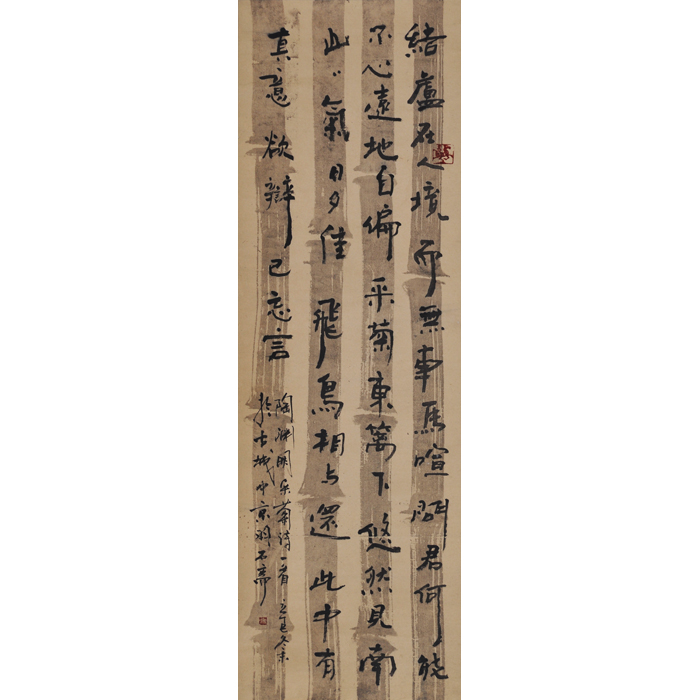 結廬在人境而無車馬喧問君何能
尔心遠地自偏采菊東篱下悠然見南
山〻氣日夕佳飛鳥相与還此中有
真意欲辯已忘言
陶渊明采菊诗一首丁巳冬末
於古城中京石斋